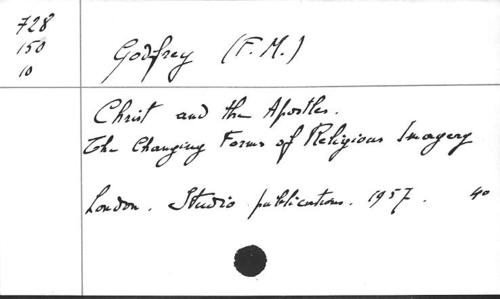 728
150
10
Godfrey (F.M.)
Christ and the Apostles.
The Changing Forms of Religious Imagery
London. Studio publications. 1957. 4o